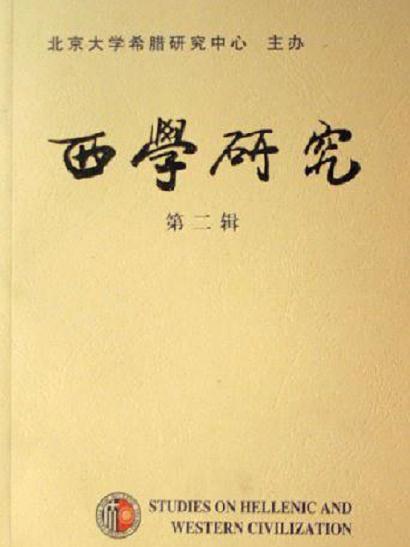 北京大学希腊研究中心 主办
西學研究
第二辑
STUDIES ON HELLENIC AND
WESTERN CIVILIZATION